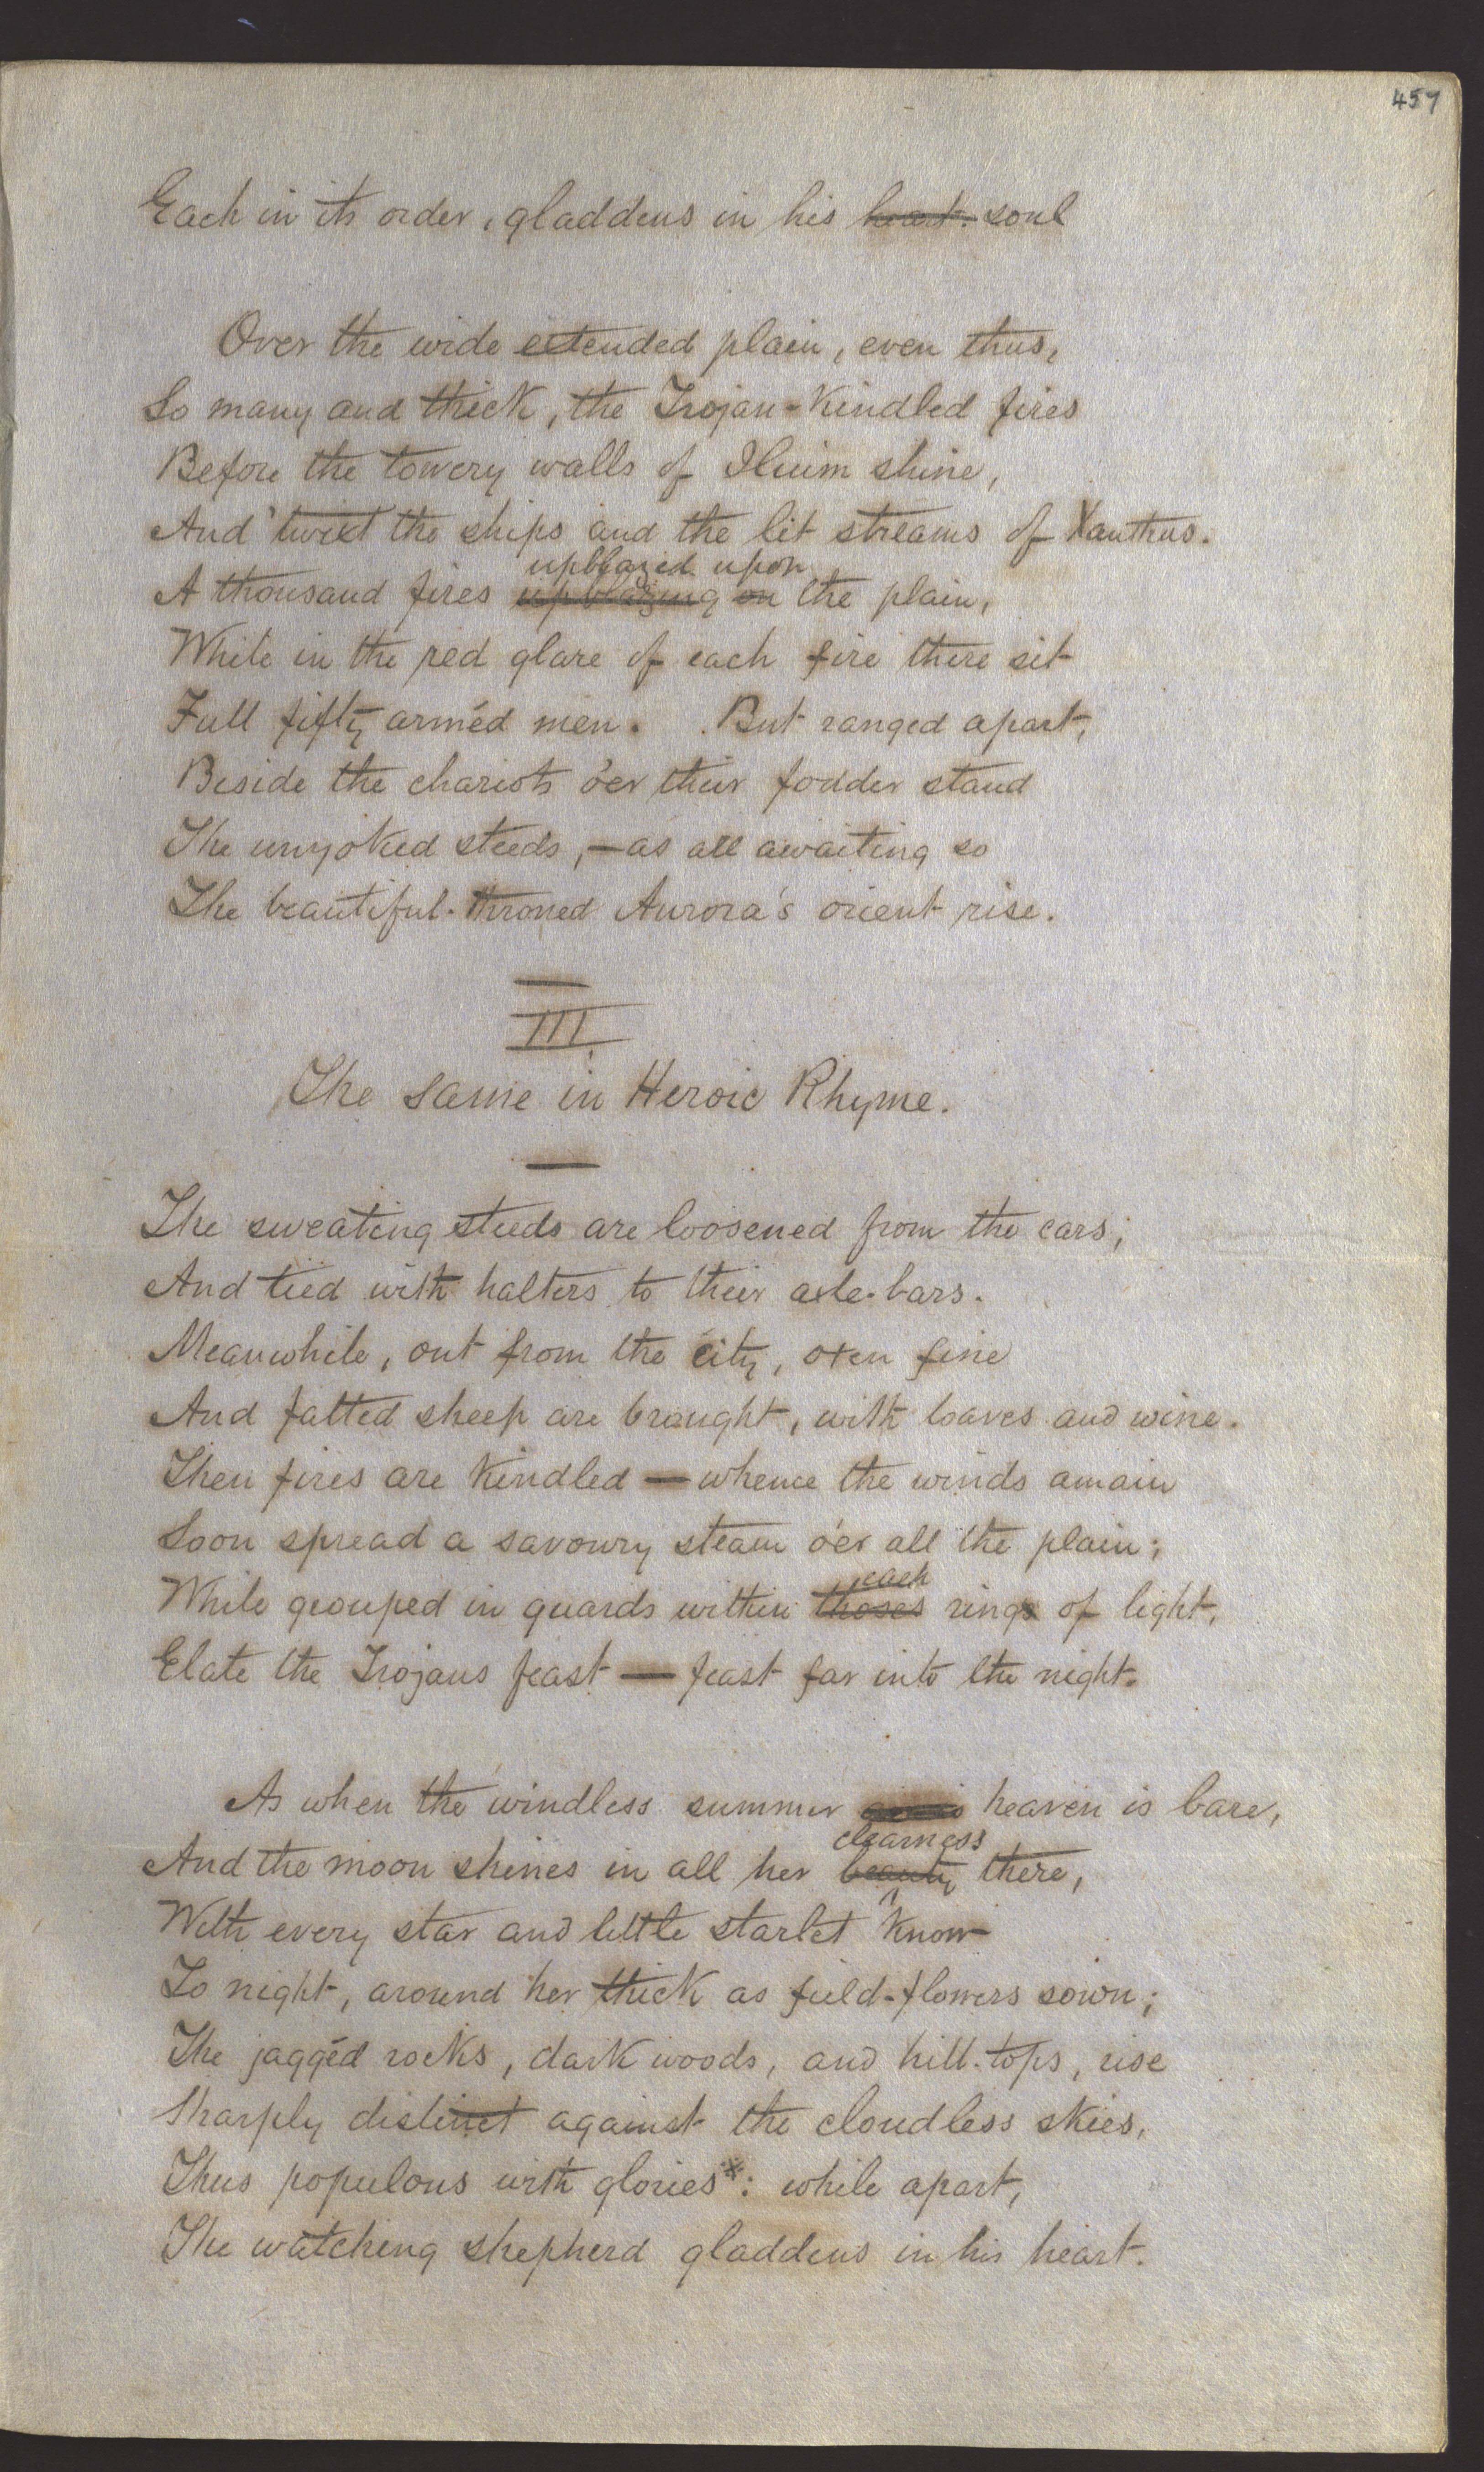 457
Each in its order, gladdens in his heart. soul
Over the wide extended plain, even thus,
So many and thick, the Trojan-Kindled fires
Before the towery walls of Iluim shine,
And 'twixt the ships and the lit streams of Xanthus.
upblazed upon
A thousand fires upblazing on the plain,
While in the red glare of each fire there sit
Full fifty arméd men. But ranged apart,
Beside the chariots o'er their fodder stand
The unyoked steeds,—as all awaiting so
The beautiful-throned Aurora's orient rise.
III.
The same in Heroic Rhyme.
The sweating steeds are loosened from the cars;
And tied with halters to their axle-bars.
Meanwhile, out from the city, oxen fine
And fatted sheep are brought, with loaves and wine.
Then fires are kindled — whence the winds amain
Soon spread a savoury steam o'er all the plain;
each
While grouped in guards within those rings of light,
Elate the Trojans feast — feast far into the night.
As when the windless summer heaven is bare,
clearness
And the moon shines in all her beauty there,
With every star and little starlet know
To night, around her thick as field-flowers sown;
The jaggéd rocks, dark woods, and hill-tops, rise
Sharply distinct against the cloudless skies,
Thus populous with glories*: while apart,
The watching shepherd gladdens in his heart.